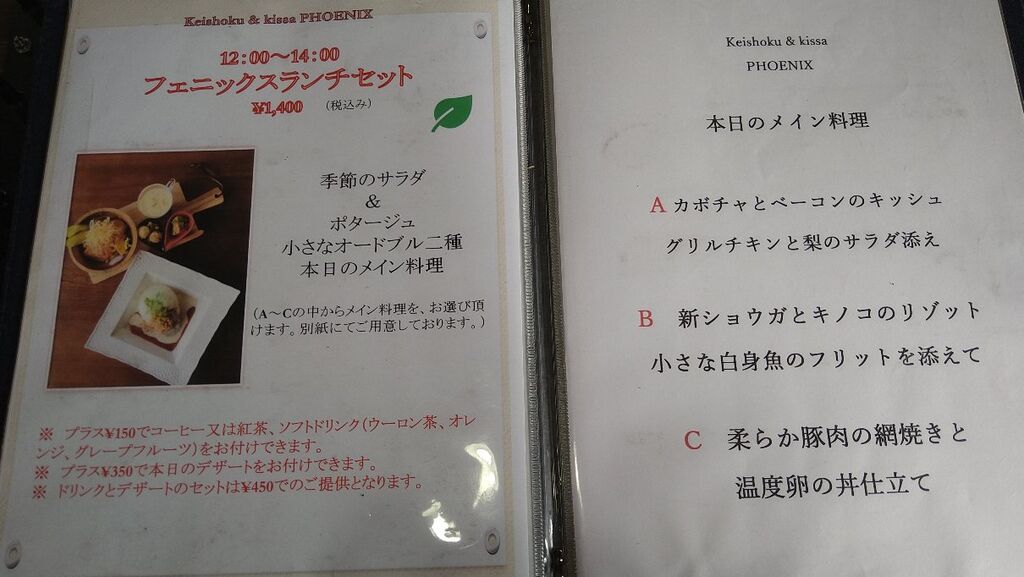 Keishoku & kissa PHOENIX
12:00～14:00
フェニックスランチセット
¥1,400 （税込み）
季節のサラダ
&
ポタージュ
小さなオードブル二種
本日のメイン料理
（A～Cの中からメイン料理を、お選び頂
けます。別紙にてご用意しております。）
※ プラス¥150でコーヒー又は紅茶、ソフトドリンク（ウーロン茶、オレ
ンジ、グレープフルーツ）をお付けできます。
※ プラス¥350で本日のデザートをお付けできます。
※ ドリンクとデザートのセットは¥450でのご提供となります。
Keishoku & kissa
PHOENIX
本日のメイン料理
A カボチャとベーコンのキッシュ
グリルチキンと梨のサラダ添え
B 新ショウガとキノコのリゾット
小さな白身魚のフリットを添えて
C 柔らか豚肉の網焼きと
温度卵の丼仕立て